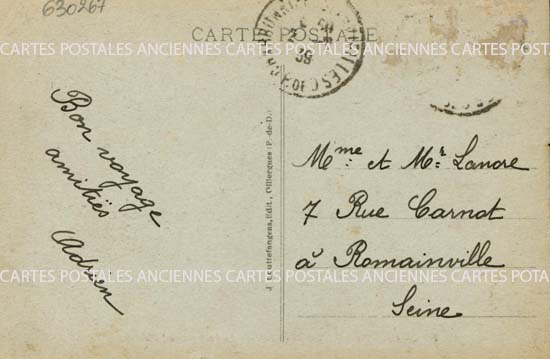 630267
CARTE POSTALE
39
CARTES POSTALES ANCIENNES CARTES POSTALES ANCIENNES CARTES POSTALES
Bon voyage
amitiés
Adrien
Edit., Olliergues (P.-de-D.)
Mme et Mr. Lanore
7 Rue Carnot
à Romainville
Seine
CARTES POSTALES ANCIENNES CARTES POSTALES ANCIENNES CARTES POSTALES